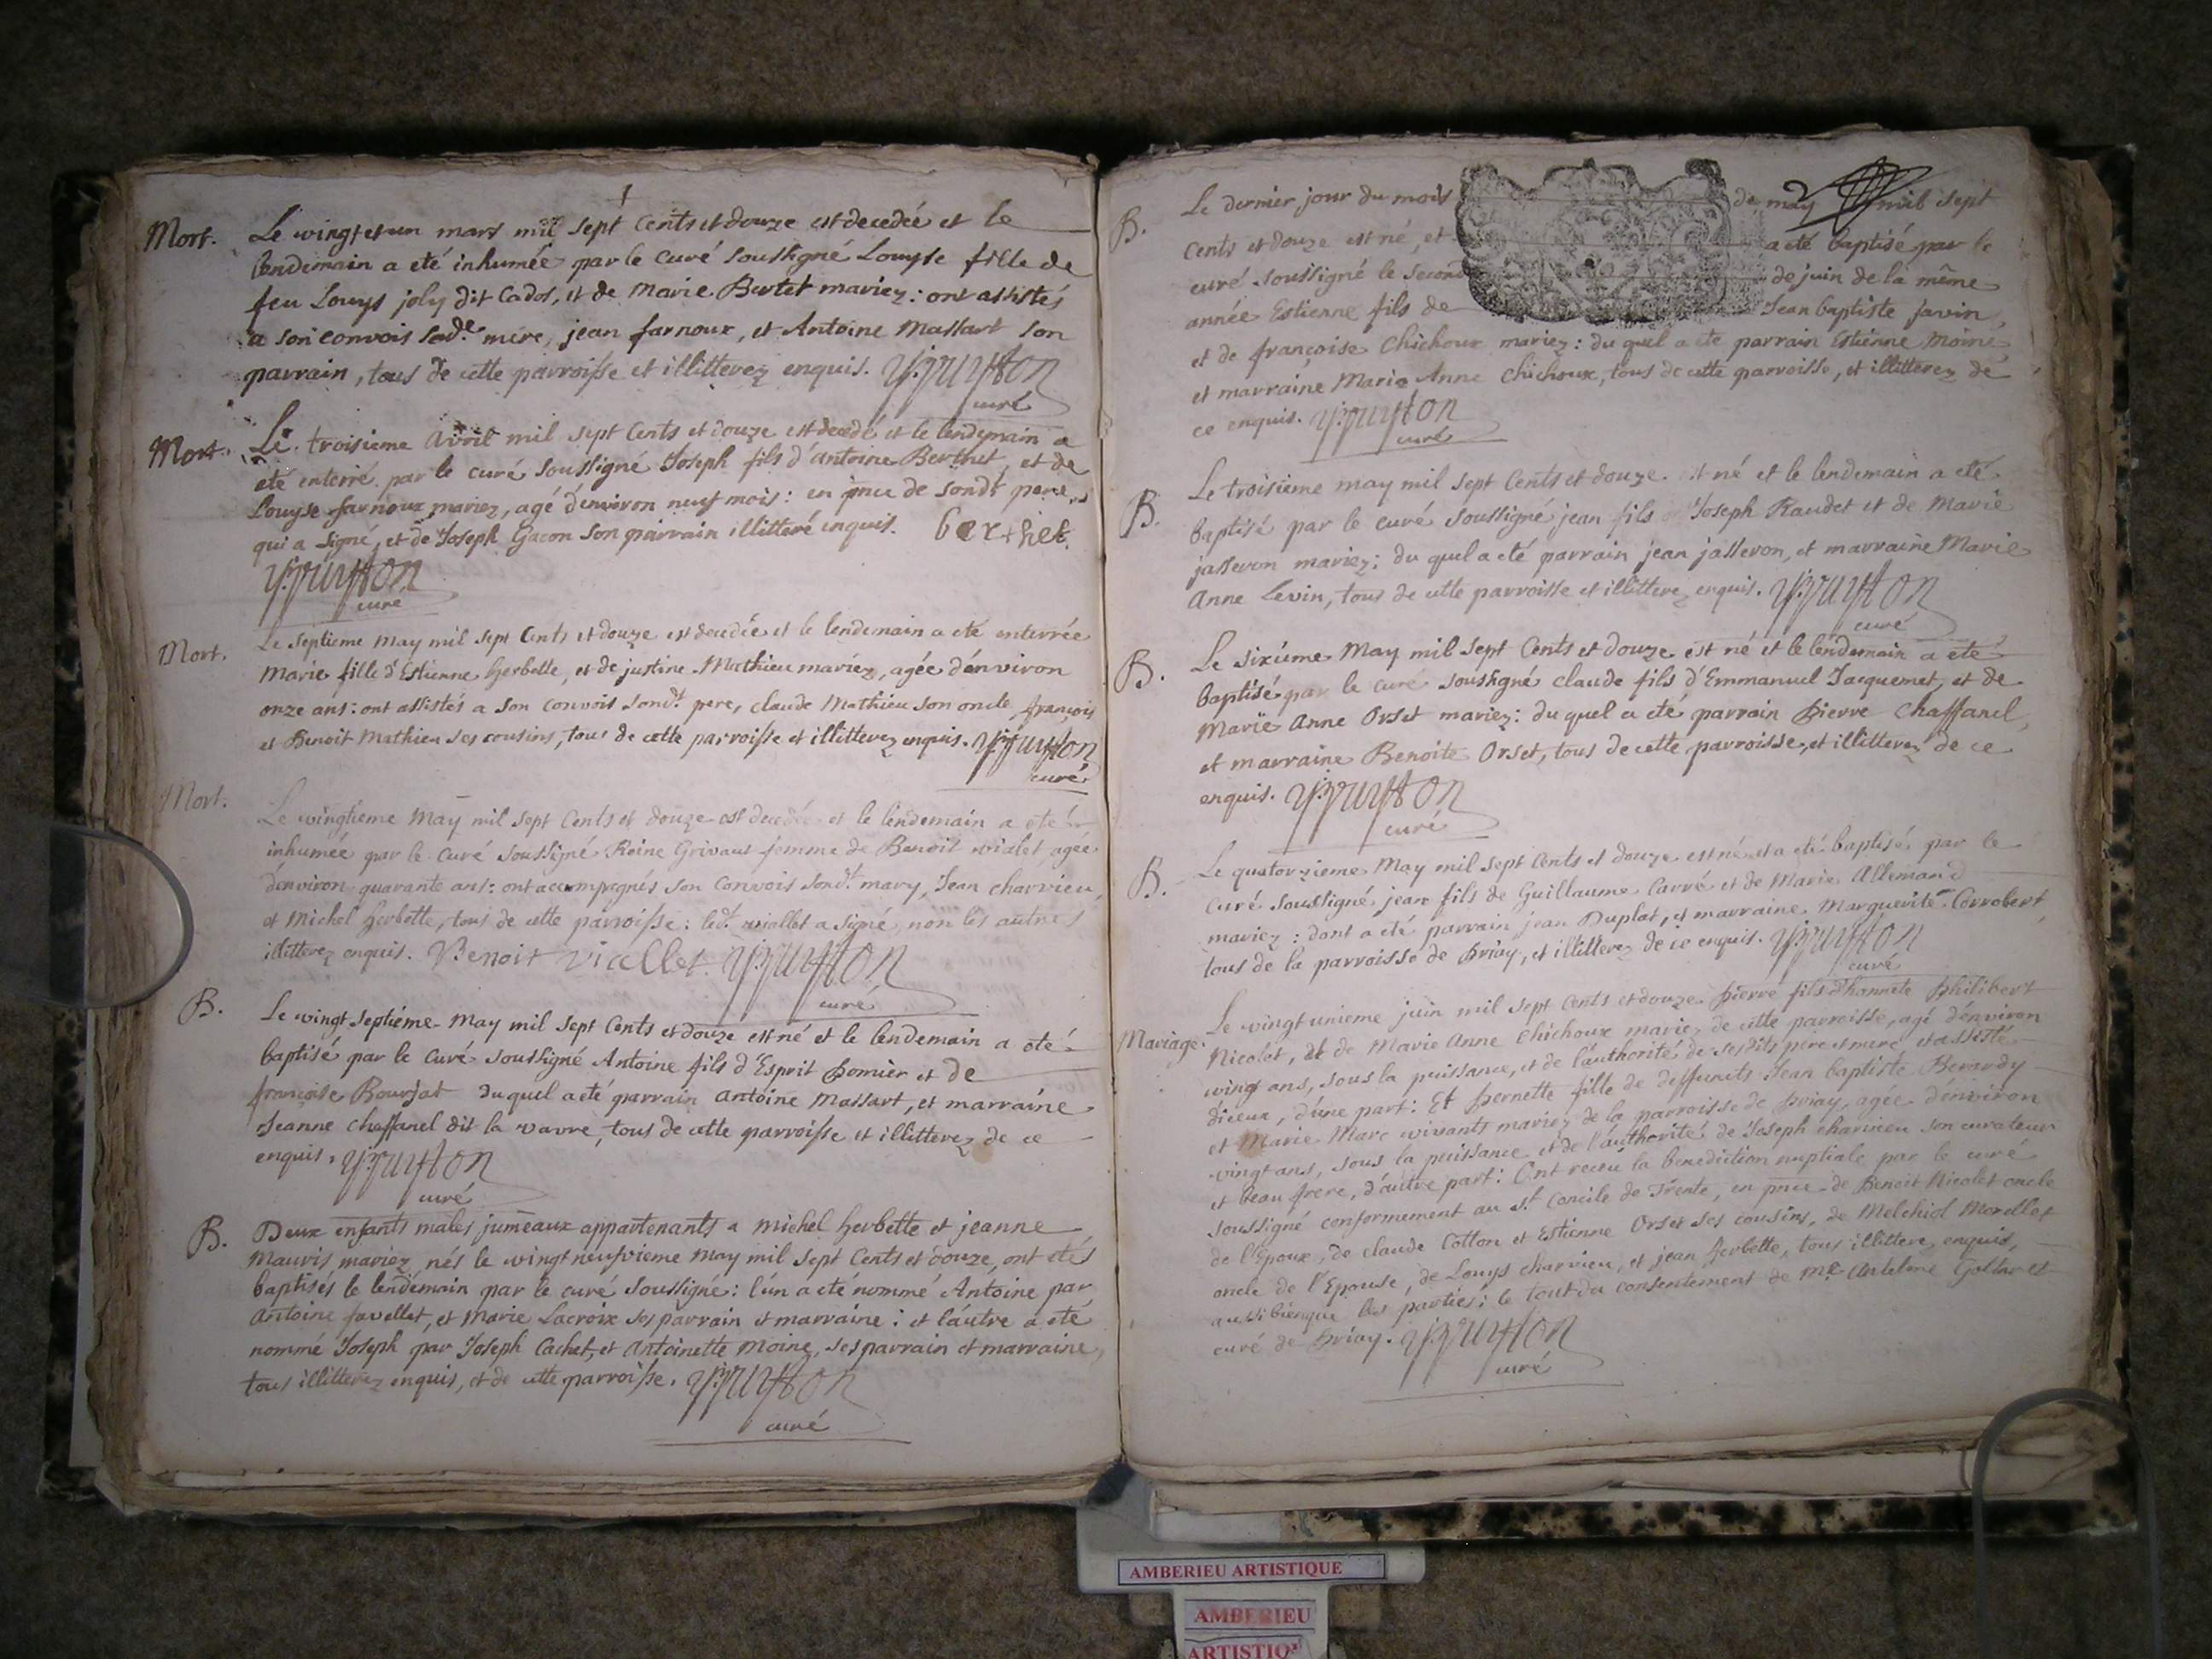 Mort. Le vingt et un mars mil sept cents et douze est decedée et le
lendemain a eté inhumée par le curé soussigné Louyse fille de
feu Louys joly dit Cados, et de Marie Bertet mariez : ont assistés
a son convois sad.e mere, jean farnoux, et Antoine Massart son
parrain, tous de cette parroisse et illitterez enquis.
curé
Mort. Le troisieme Avril mil sept cents et douze est decedé et le lendemain a
eté enterré par le curé soussigné Joseph fils d'Antoine Berthet, et de
Louyse farnoux mariez, agé d'environ neuf mois : en pnce de sondt pere,
qui a signé, et de Joseph Gacon son parrain illitteré enquis. berthet.
curé
Mort. Le septieme May mil sept cents et douze est decedée et le lendemain a eté enterrée
Marie fille d'Estienne herbette, et de justine Mathieu mariez, agée d'environ
onze ans : ont assistés a son convois sondt. pere, claude Mathieu son oncle, françois
et Benoit Mathieu ses cousins, tous de cette parroisse et illitterez enquis.
curé
Mort. Le vingtieme May mil sept cents et douze est decedée et le lendemain a eté
inhumée par le curé soussigné Reine Grivaut femme de Benoit vialet, agée
d'environ quarante ans : ont accompagnés son convois sondt. mary, Jean charvieu,
et Michel herbette, tous de cette parroisse : ledt. viallet a signé, non les autres
illitterez enquis. Benoit viallet.
curé
B. Le vingt septiéme May mil sept cents et douze est né et le lendemain a eté
baptisé par le curé soussigné Antoine fils d'Esprit pomier et de
françoise Bourjat duquel a eté parrain antoine Massart, et marraine
Jeanne chaffanel dit la vavre, tous de cette parroisse et illitterez de ce
enquis.
curé
B. Deux enfants males jumeaux appartenants a michel herbette et jeanne
Mauris mariez, nés le vingt neufvieme May mil sept cents et douze, ont etés
baptisés le lendemain par le curé soussigné : l'un a eté nommé Antoine par
Antoine favellet, et Marie Lacroix ses parrain et marraine : et l'autre a eté
nommé Joseph par Joseph Cachet, et antoinette moine, ses parrain et marraine,
tous illitterez enquis, et de cette parroisse.
curé
B. Le dernier jour du mois de may mil sept
cents et douze est né, et a eté baptisé par le
curé soussigné le second de juin de la même
année Estienne fils de Jean baptiste favin,
et de françoise Chichoux mariez : du quel a ete parrain Estienne Moine,
et marraine Marie Anne chichoux, tous de cette parroisse, et illitterez de
ce enquis.
curé
B. Le troisieme may mil sept cents et douze est né et le lendemain a eté
baptisé par le curé soussigné jean fils de Joseph Raudet et de Marie
jasseron mariez : du quel a eté parrain jean jasseron, et marraine Marie
Anne Levin, tous de cette parroisse et illitterez enquis.
curé
B. Le sixieme May mil sept cents et douze est né et le lendemain a eté
baptisé par le curé soussigné claude fils d'Emmanuel Jacquemet, et de
Marie Anne Orset mariez : du quel a eté parrain pierre chaffanel,
et marraine Benoite Orset, tous de cette parroisse, et illitterez de ce
enquis.
curé
B. Le quatorzieme May mil sept cents et douze est né et a eté baptisé par le
curé soussigné jean fils de Guillaume Carré et de Marie Allemand
mariez : dont a eté parrain jean Duplat, et marraine Marguerite Corrobert,
tous de la parroisse de priay, et illitterez de ce enquis.
curé
Mariage. Le vingt unieme juin mil sept cents et douze pierre fils d'honnete philibert
Nicolet, et de Marie Anne Chichoux mariez de cette parroisse, agé d'environ
vingt ans, sous la puissance, et de l'authorité de sesdits pere et mere et assisté
diceux, d'une part : Et pernette fille de deffuncts Jean baptiste Berardy
et Marie Marc vivants mariez de la parroisse de priay, agée d'environ
vingt ans, sous la puissance et de l'authorité de Joseph charvieu son curateur
et beau frere, d'autre part : Ont receu la benediction nuptiale par le curé
soussigné conformement au st. Concile de Trente, en pnce de Benoit Nicolet oncle
de l'Epoux, de claude Cotton et Estienne Orset ses cousins, de Melchiol Morellet
oncle de l'Epouse, de Louys charvieu, et jean herbette, tous illitterez enquis,
aussi bien que les parties : le tout du consentement de Mre. Antelme
curé de priay.
curé
AMBERIEU ARTISTIQUE
AMBERIEU
ARTISTIQ